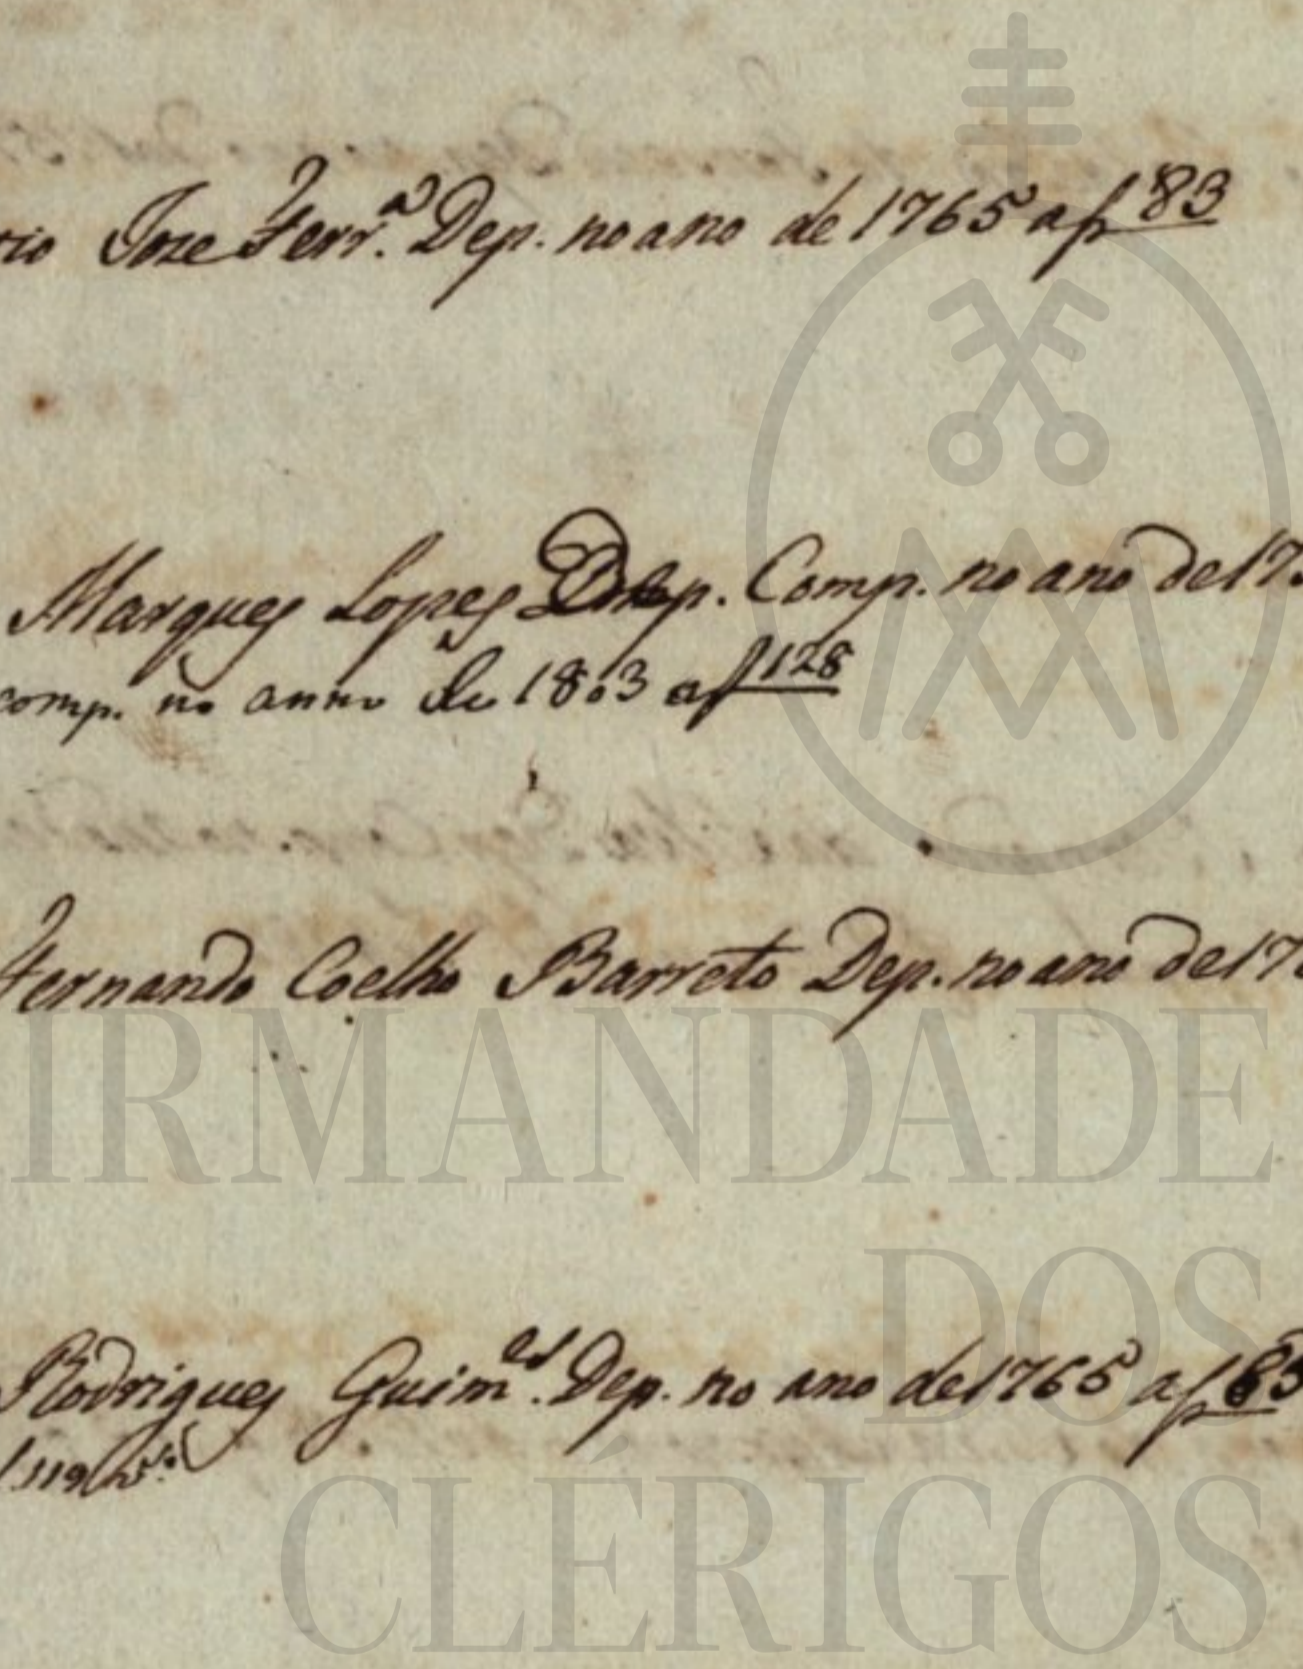 rio Joze Ferr.ª Dep. no ano de 1765 a f 83
Marques Lopes Dep. Comp. no ano de 17
comp. no anno de 1803 a f 128
Fernando Coelho Barreto Dep. no ano de 17
IRMANDADE
DOS
Rodrigues Guim.es Dep. no ano de 1765 a f 83
119
CLÉRIGOS